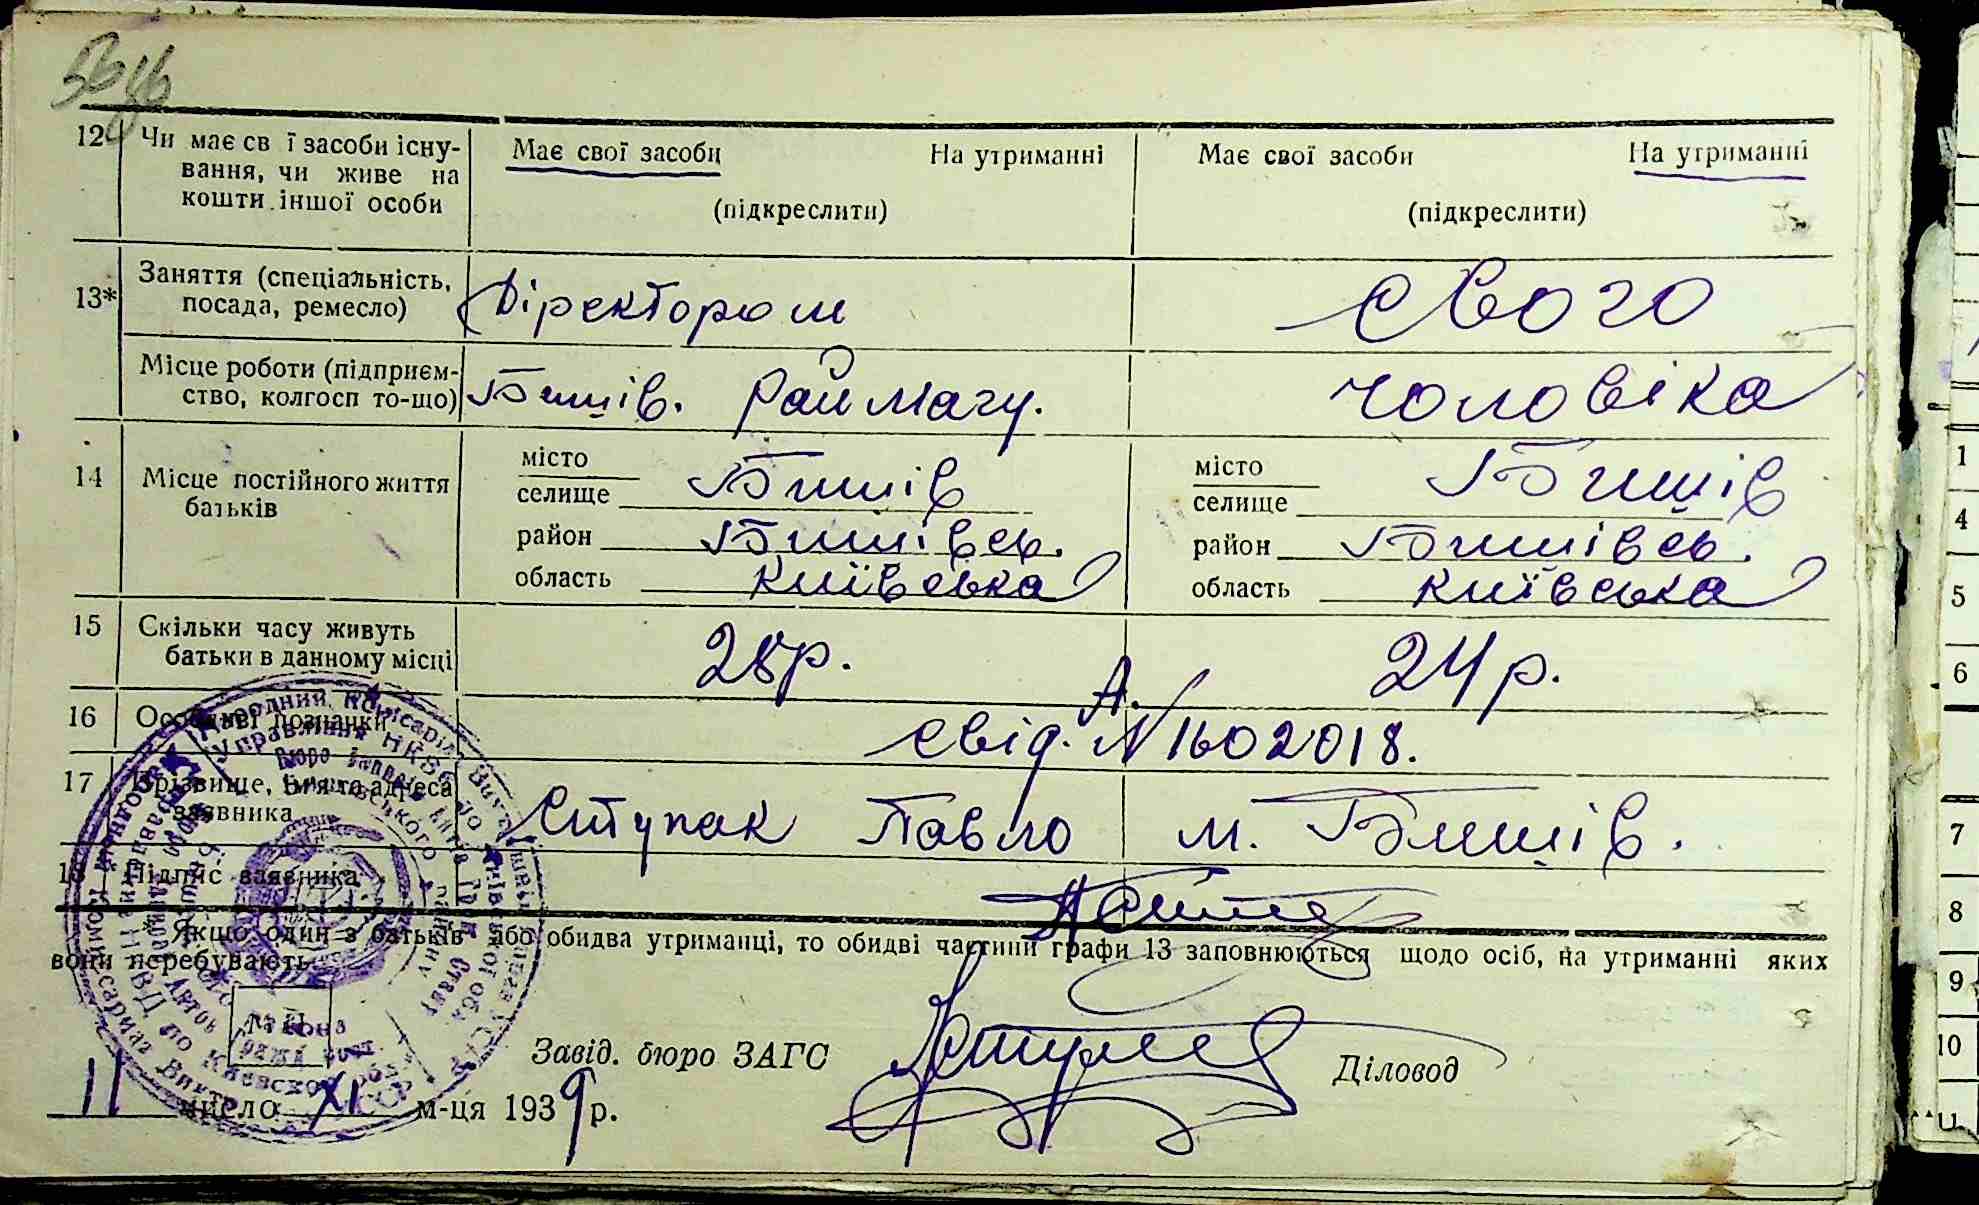 12 Чи має св ї засоби існу-
вання, чи живе на
кошти іншої особи
Має свої засоби На утриманні
(підкреслити)
Має свої засоби На утриманні
(підкреслити)
13* Заняття (спеціальність,
посада, ремесло)
Діректором
свого
Місце роботи (підприєм-
ство, колгосп то-що)
Бишів. Раймагу.
чоловіка
14 Місце постійного життя
батьків
місто
селище Бишів
район Бишівсь.
область Київська
місто
селище Бишів
район Бишівсь.
область Київська
15 Скільки часу живуть
батьки в данному місці
28р.
24р.
16 Особливі познанки
А.
свід. №1602018.
17 Прізвище, ім'я та адреса
заявника
Ступак Павло м. Бишів.
18 Підпис заявника
* Якщо один з батьків або обидва утриманці, то обидві частини графи 13 заповнюються щодо осіб, на утриманні яких
вони перебувають
Завід. бюро ЗАГС
Діловод
11 число XI м-ця 1939 р.
1
4
5
6
7
8
9
10